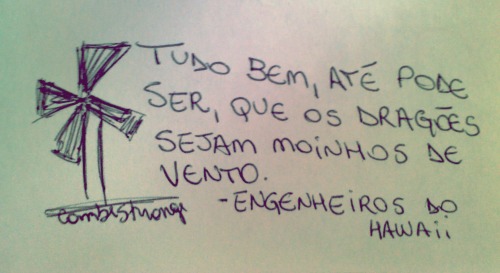 TUDO BEM, ATÉ PODE
SER, QUE OS DRAGÕES
SEJAM MOINHOS DE
VENTO.
-ENGENHEIROS DO
HAWAII